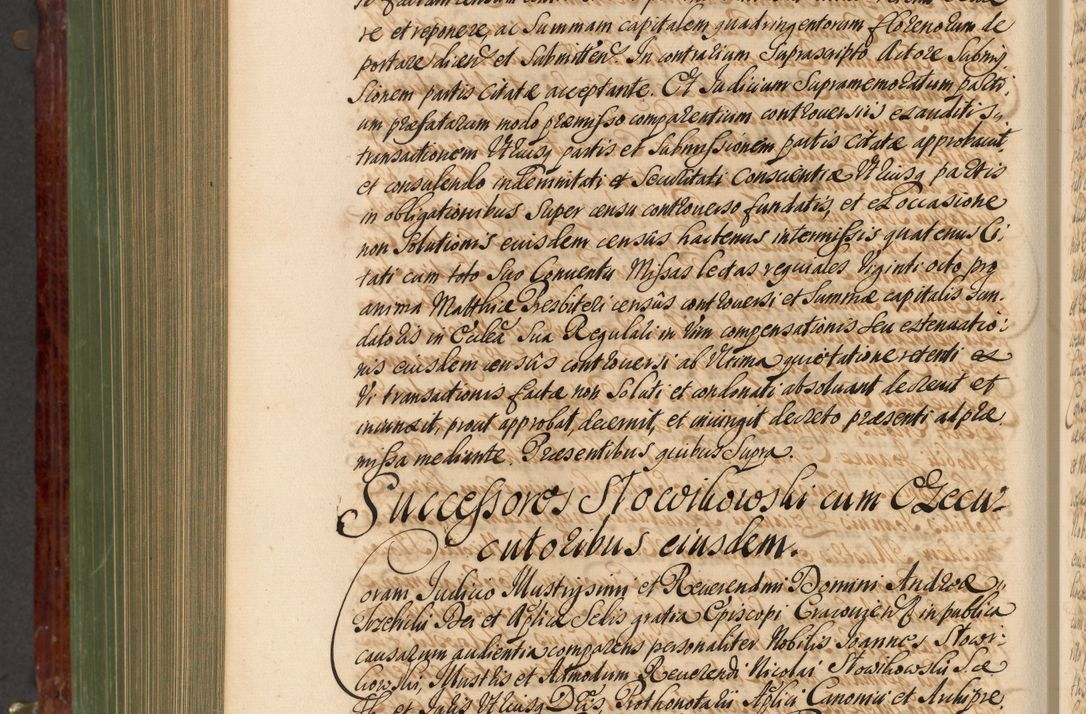 re et reponere, ac Summam capitalem quadringentorum florenorum de
portare dicen. et Submitten. In contrarium Suprascripto Actore Submis
sionem partis Citatæ acceptante. Et Judicium Supramemoratum parti:
um præfatarum modo præmisso comparentium controversiis exauditis,
transactionem Utriusq partis et Submissionem partis Citatæ approbavit,
et consulendo indemnitati et Securitati Conscientiæ Utriusq partis
in obligationibus Super censu controverso fundatis, et ex occasione
non Solutionis eiusdem censûs hactenus intermissis quatenus Ci:
tati cum toto Suo Conventu Missas lectas requiales Viginti octo pro
anima Matthiæ Presbiteri censûs controversi et Summæ capitalis Fun:
datoris in Ecclea Sua Regulari in Vim compensationis Seu extenuatio:
nis eiusdem censûs controversi ab Ultima quietatione retenti ex
Vi transactionis factæ non Soluti et condonati absolvant decrevit et
iniunxit, prout approbat, decernit, et iniungit decreto præsenti ad præ
missa mediante. Præsentibus quibus Supra.
Successores Stowikowski cum Execu:
cutoribus eiusdem.
Coram Judicio Illustrissimi et Reverendmi Domini Andreæ
Trzebicki Dei et Aplicæ Sedis gratia Episcopi Cracovien in publica
causarum audientia comparens personaliter Nobilis Joannes Stowi:
kowski, Illustris et Admodum Reverendi Nicolai Stowikowski Sce
Th. et Juris Utriusq Dris, Prothonotarii Aplici Canonici et Archipre